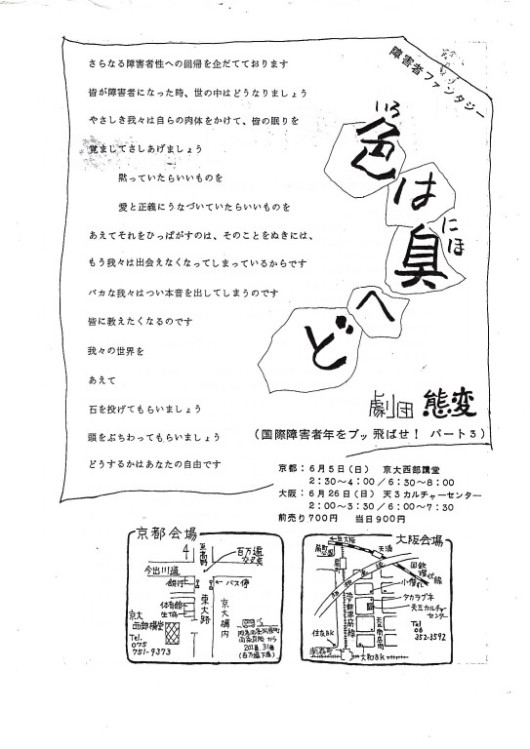 障害者ファンタジー
色は臭へど
いろ
にほ
さらなる障害者性への回帰を企だてております
皆が障害者になった時、世の中はどうなりましょう
やさしき我々は自らの肉体をかけて、皆の眠りを
覚ましてさしあげましょう
黙っていたらいいものを
愛と正義にうなづいていたらいいものを
あえてそれをひっぱがすのは、そのことをぬきには、
もう我々は出会えなくなってしまっているからです
バカな我々はつい本音を出してしまうのです
皆に教えたくなるのです
我々の世界を
あえて
石を投げてもらいましょう
頭をぶちわってもらいましょう
どうするかはあなたの自由です
劇団 態変
(国際障害者年をブッ飛ばせ! パート3)
京都:6月5日(日) 京大西部講堂
2:30〜4:00/6:30〜8:00
大阪:6月26日(日) 天3カルチャーセンター
2:00〜3:30/6:00〜7:30
前売り700円 当日900円
京都会場
至高野
百万遍
交差点
今出川通
バス停
東大路
京大構内
体育館
生協
京大
西部構堂
Tel.
075
751-9373
201番, 31番
(百万遍下車)
大阪会場
扇町公園
天満
国鉄
環状線
タカラブネ
天三カルチャー
センター
Tel
06
352-3592
住友BK
大和BK